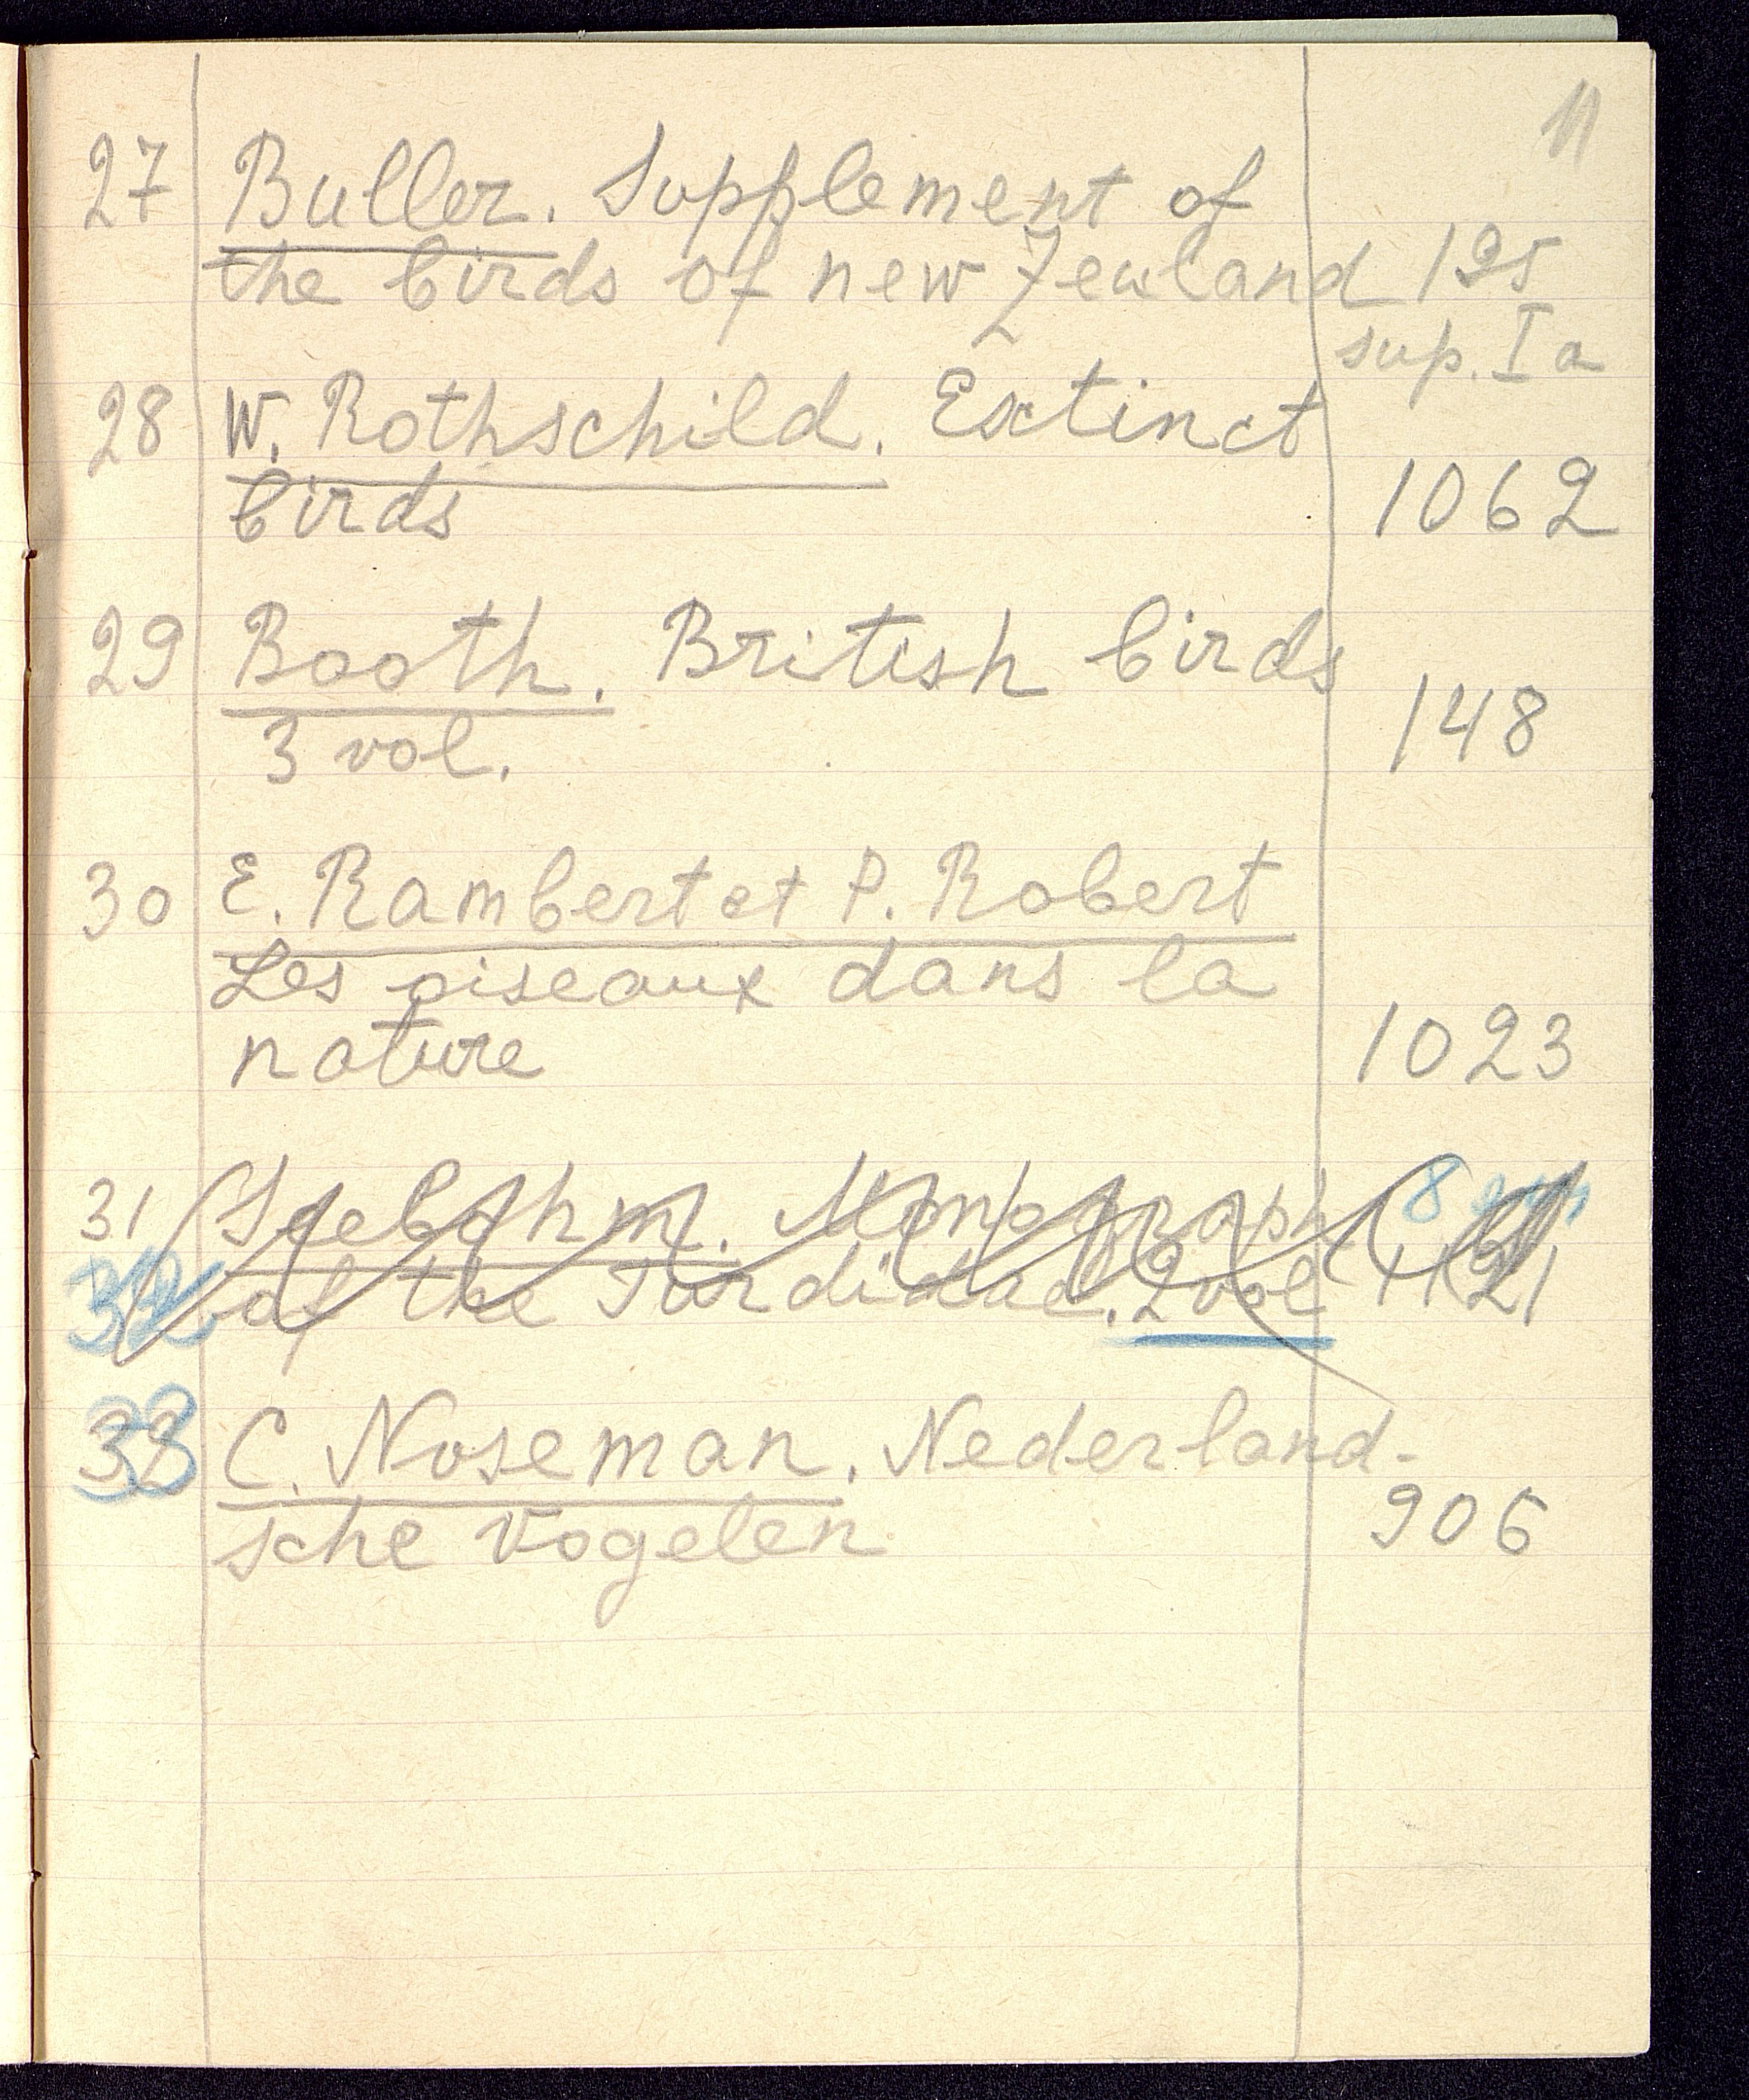 11
27 Buller. Supplement of
the birds of new Zealand 195
sup. Ia
28 W. Rothschild. Extinct
birds 1062
29 Booth. British birds
3 vol. 148
30 E. Rambert et P. Robert
Les oiseaux dans la
nature 1023
31 Seebohm. Monograph 8
32 of the Turdidae. 2 vol 1121
33 C. Noseman. Nederland-
sche Vogelen 906